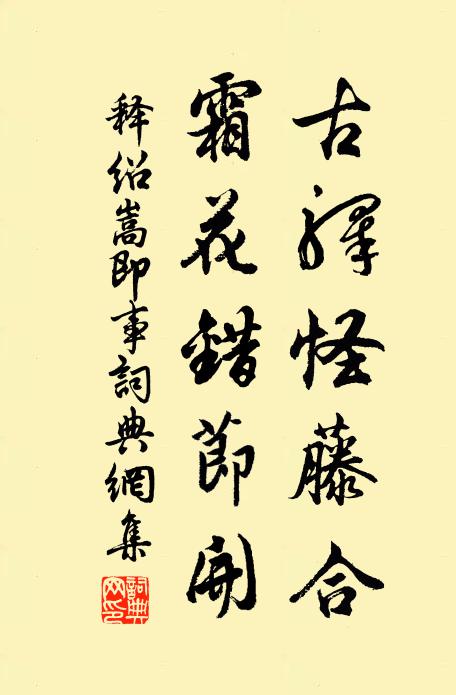 古驛怪藤合
霜花錯節開
释紹嵩即事詞典網集
詞典网印